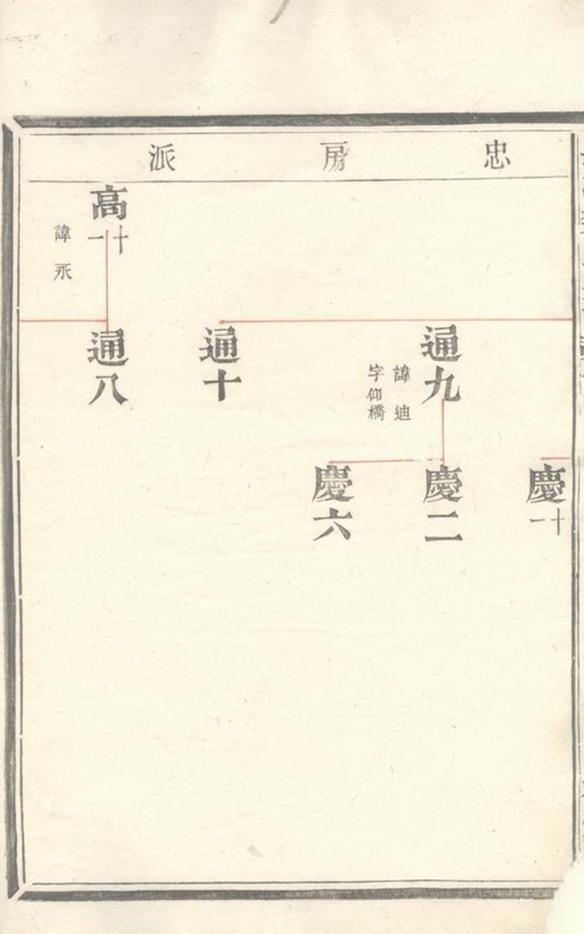 忠房派
慶十一
通九
諱迪
字仰橋
慶二
慶六
通十
高十一
諱永
通八